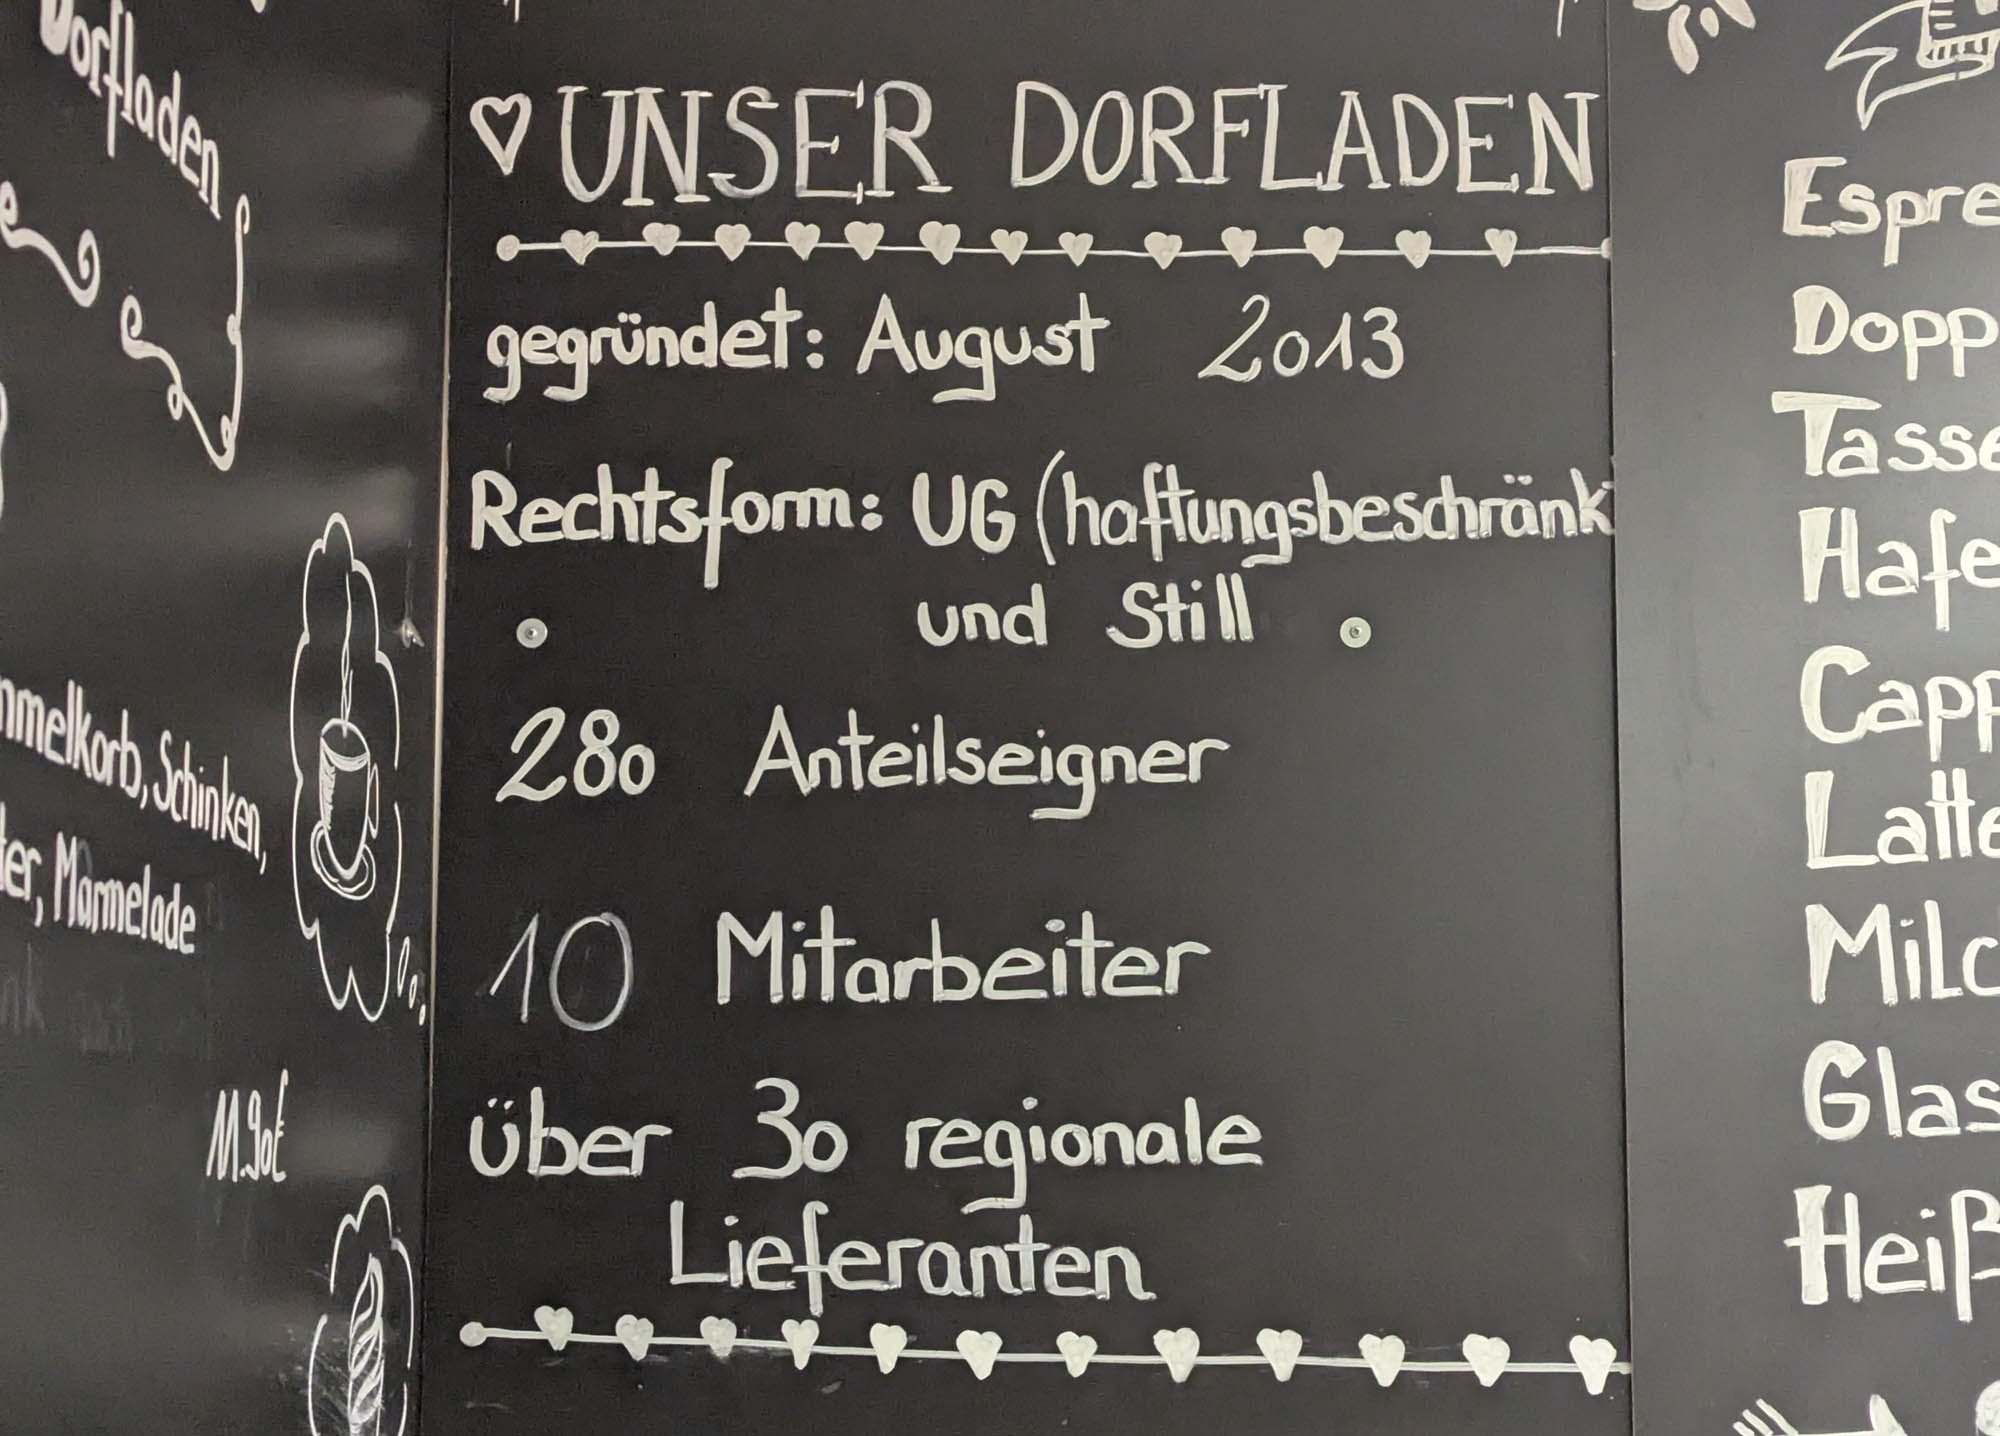 Dorfladen
Schinken,
Marmelade
11.90€
UNSER DORFLADEN
gegründet: August 2013
Rechtsform: UG (haftungsbeschränk
und Still
280 Anteilseigner
10 Mitarbeiter
über 30 regionale
Lieferanten
Espre
Dopp
Tasse
Hafe
Capp
Latte
Milc
Glas
Heiß